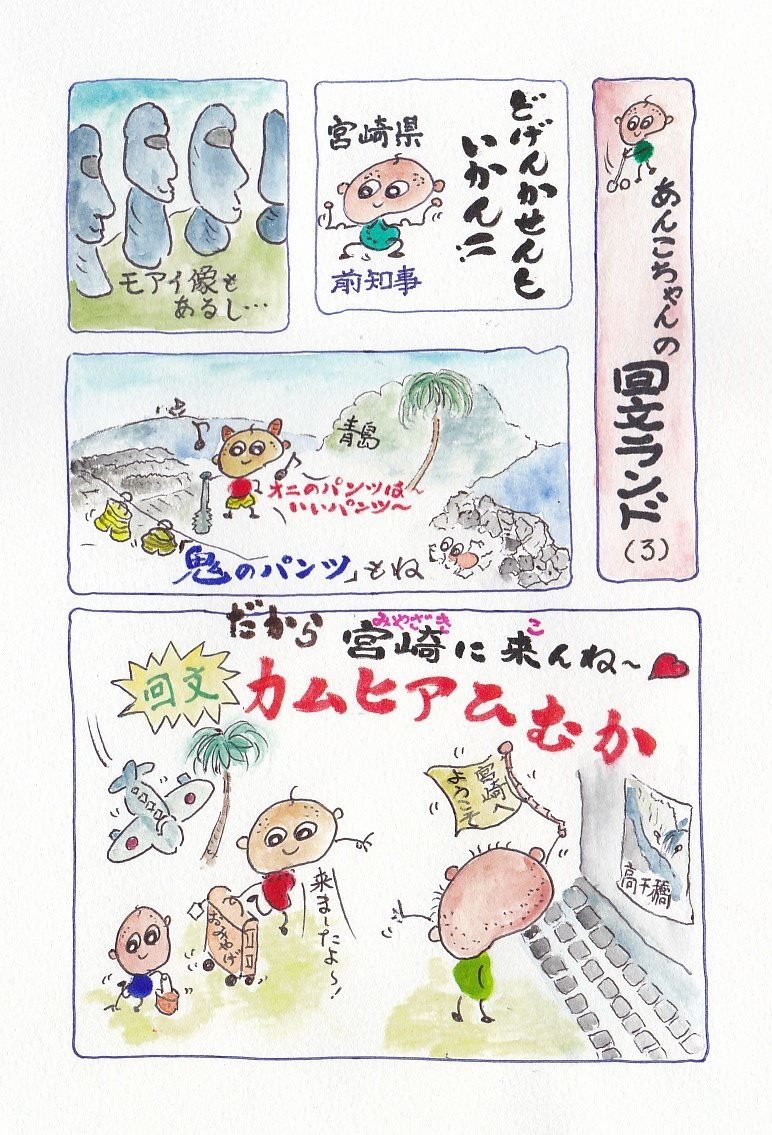 あんこちゃんの
回文ランド
(3)
どげんかせんと
いかん!!
宮崎県
前知事
モアイ像も
あるし…
青島
オニのパンツは～
いいパンツ～
「鬼のパンツ」もね
みやざき こ
だから 宮崎に来んね～
回文
カムヒアひむか
宮崎へ
ようこそ
高千穂
来ましたよ～!
おみやげ